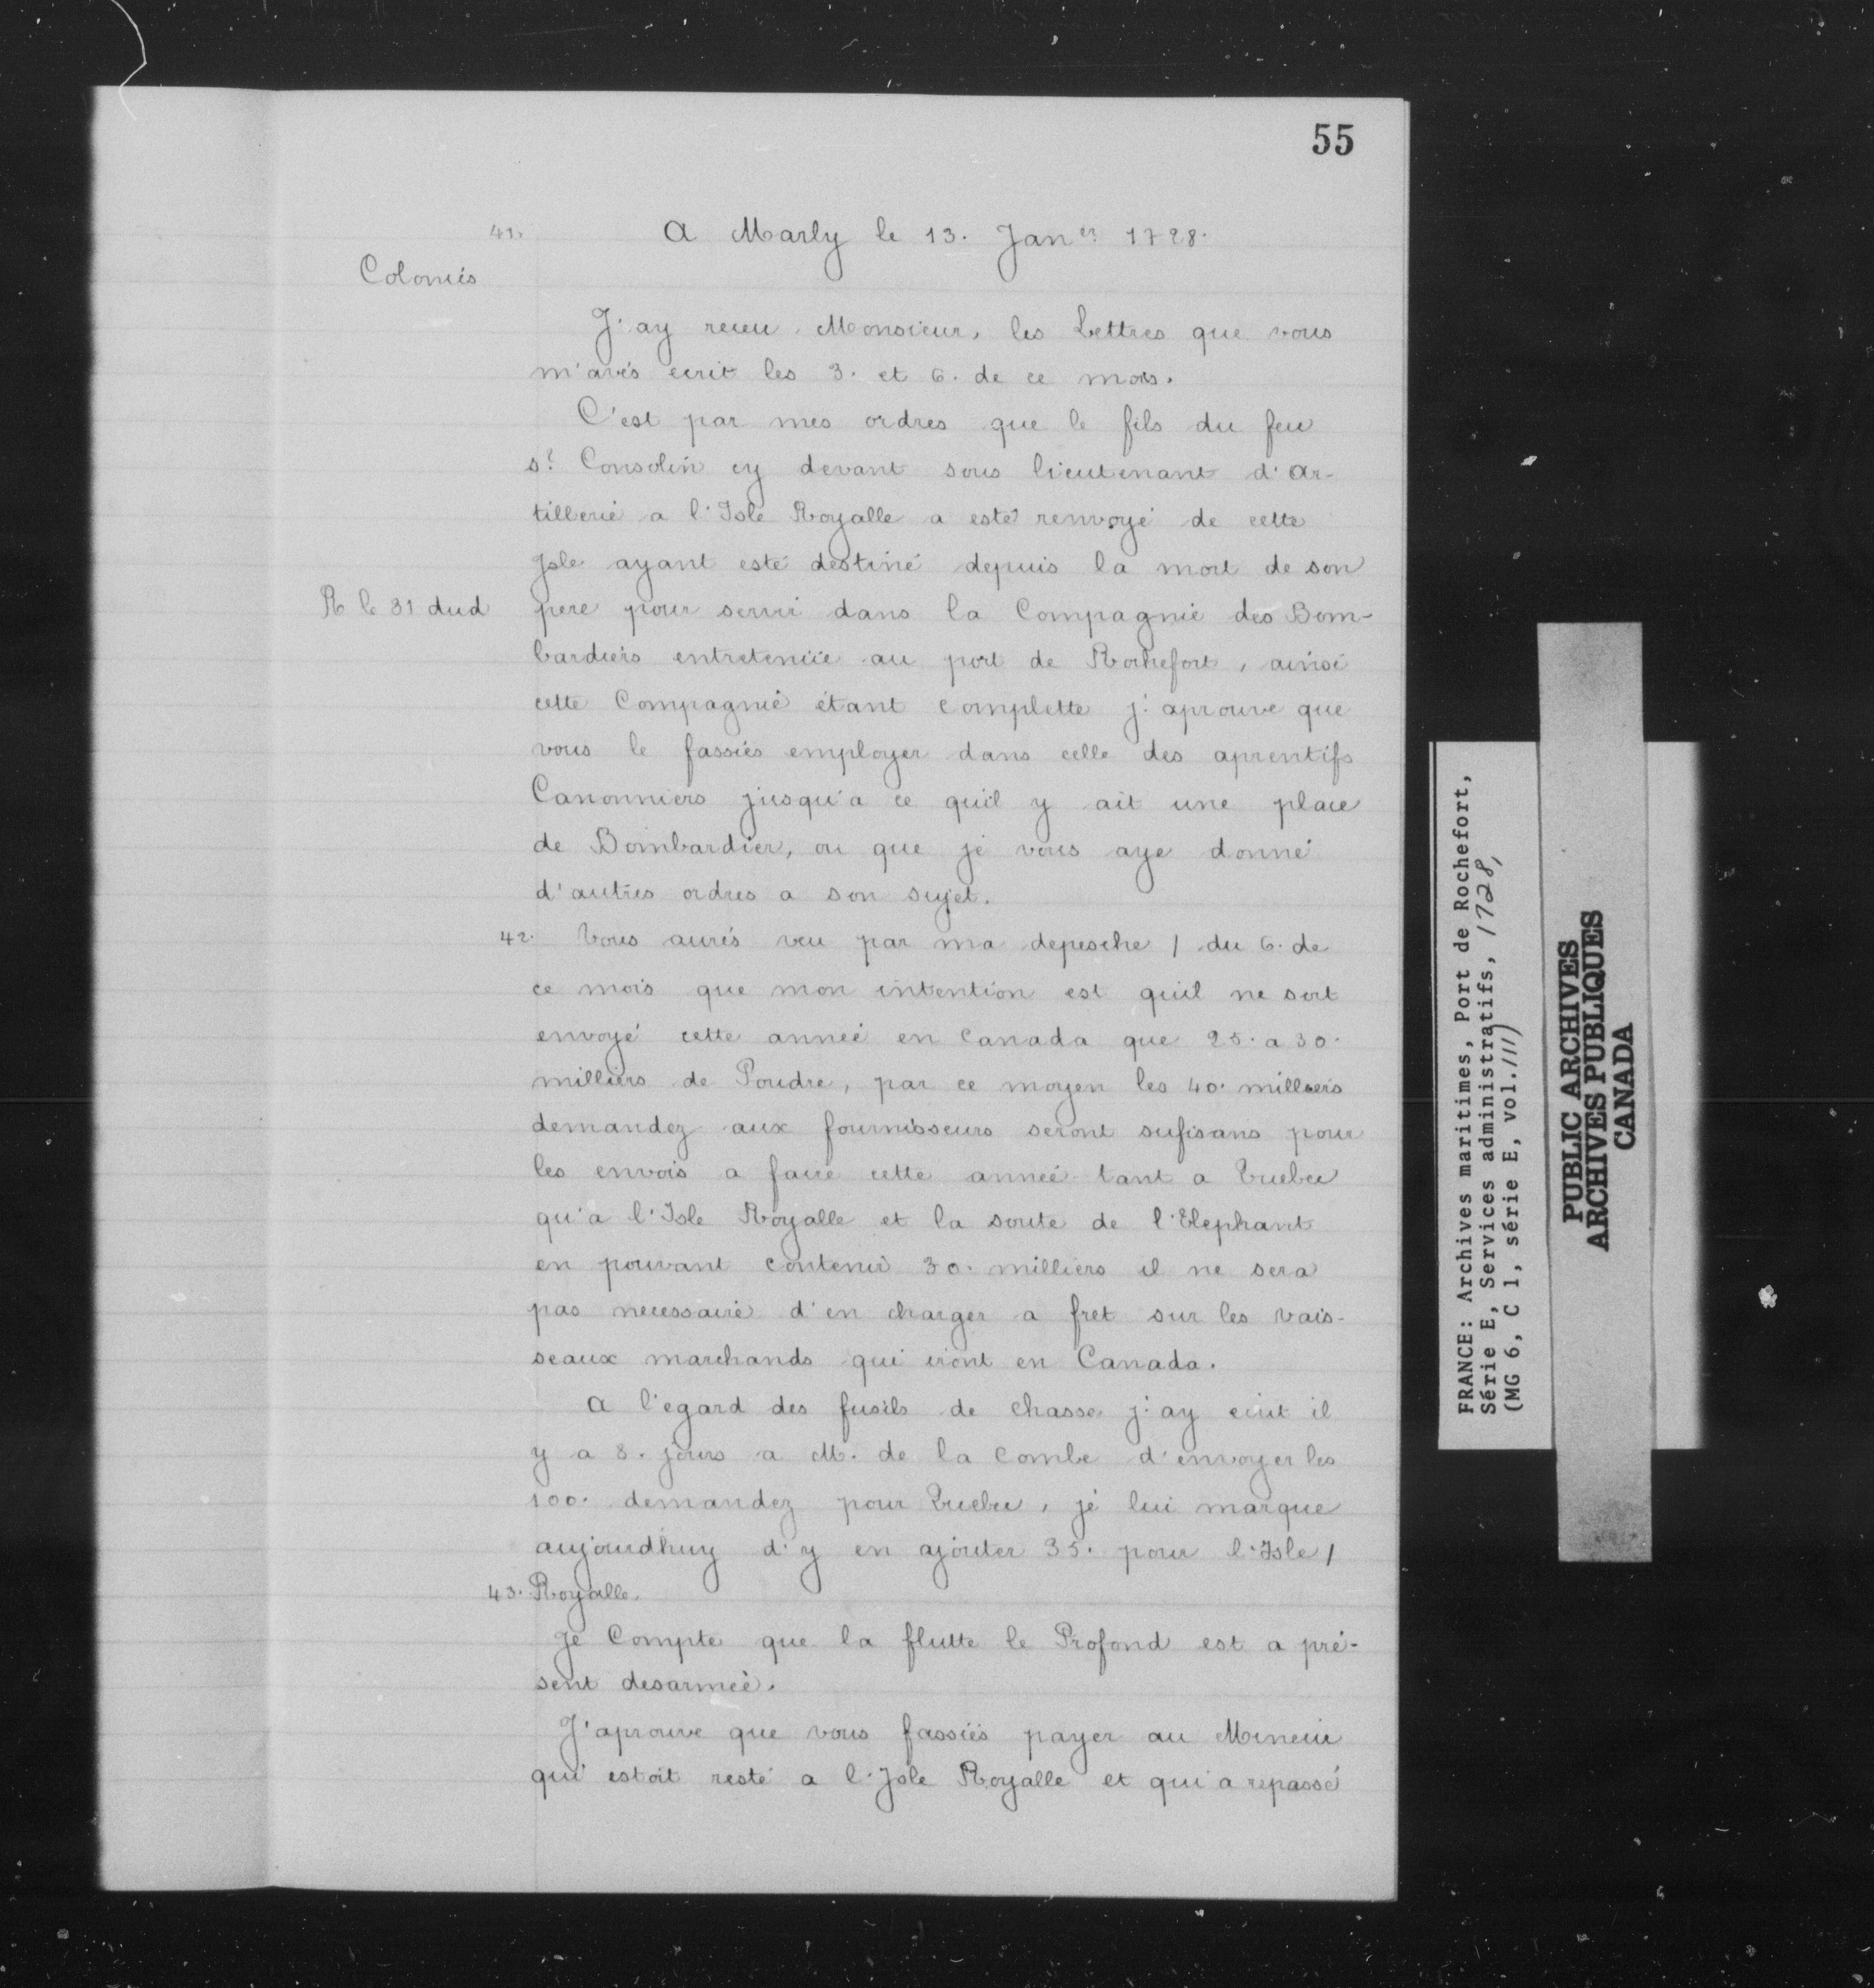 55
41.
A Marly le 13. Jan er 1728.
Colonies
J'ay receu, Monsieur, les Lettres que vous
m'avés ecrit les 3. et 6. de ce mois.
C'est par mes ordres que le fils du feu
sr. Consolin cy devant sous lieutenant d'Ar-
tillerie a l'Isle Royalle a esté renvoyé de cette
Isle ayant esté destiné depuis la mort de son
R le 31 dud
pere pour servir dans la Compagnie des Bom-
bardiers entretenüe au port de Rochefort, ainsi
cette Compagnie étant complette j'aprouve que
vous le fassiés employer dans celle des aprentifs
Canonniers jusqu'a ce quil y ait une place
de Bombardier, ou que je vous aye donné
d'autres ordres a son sujet.
42. Vous aurés veu par ma depesche / du 6. de
ce mois que mon intention est quil ne soit
envoyé cette année en Canada que 25. a 30.
milliers de Poudre, par ce moyen les 40. milliers
demandez aux fournisseurs seront sufisans pour
les envois a faire cette année tant a Quebec
qu'a l'Isle Royalle et la soute de l'Elephant
en pouvant contenir 30. milliers il ne sera
pas necessaire d'en charger a fret sur les vais-
seaux marchands qui iront en Canada.
A l'egard des fusils de chasse j'ay ecrit il
y a 8. jours a M. de la Combe d'envoyer les
100. demandez pour Quebec, je lui marque
aujourdhuy d'y en ajouter 35. pour l'Isle /
43. Royalle.
Je Compte que la flutte le Profond est a pré-
sent desarmée.
J'aprouve que vous fassiés payer au Mineur
qui estoit resté a l'Isle Royalle et qui a repassé
FRANCE: Archives maritimes, Port de Rochefort,
Série E, Services administratifs, 1728,
(MG 6, C 1, série E, vol. 111)
PUBLIC ARCHIVES
ARCHIVES PUBLIQUES
CANADA